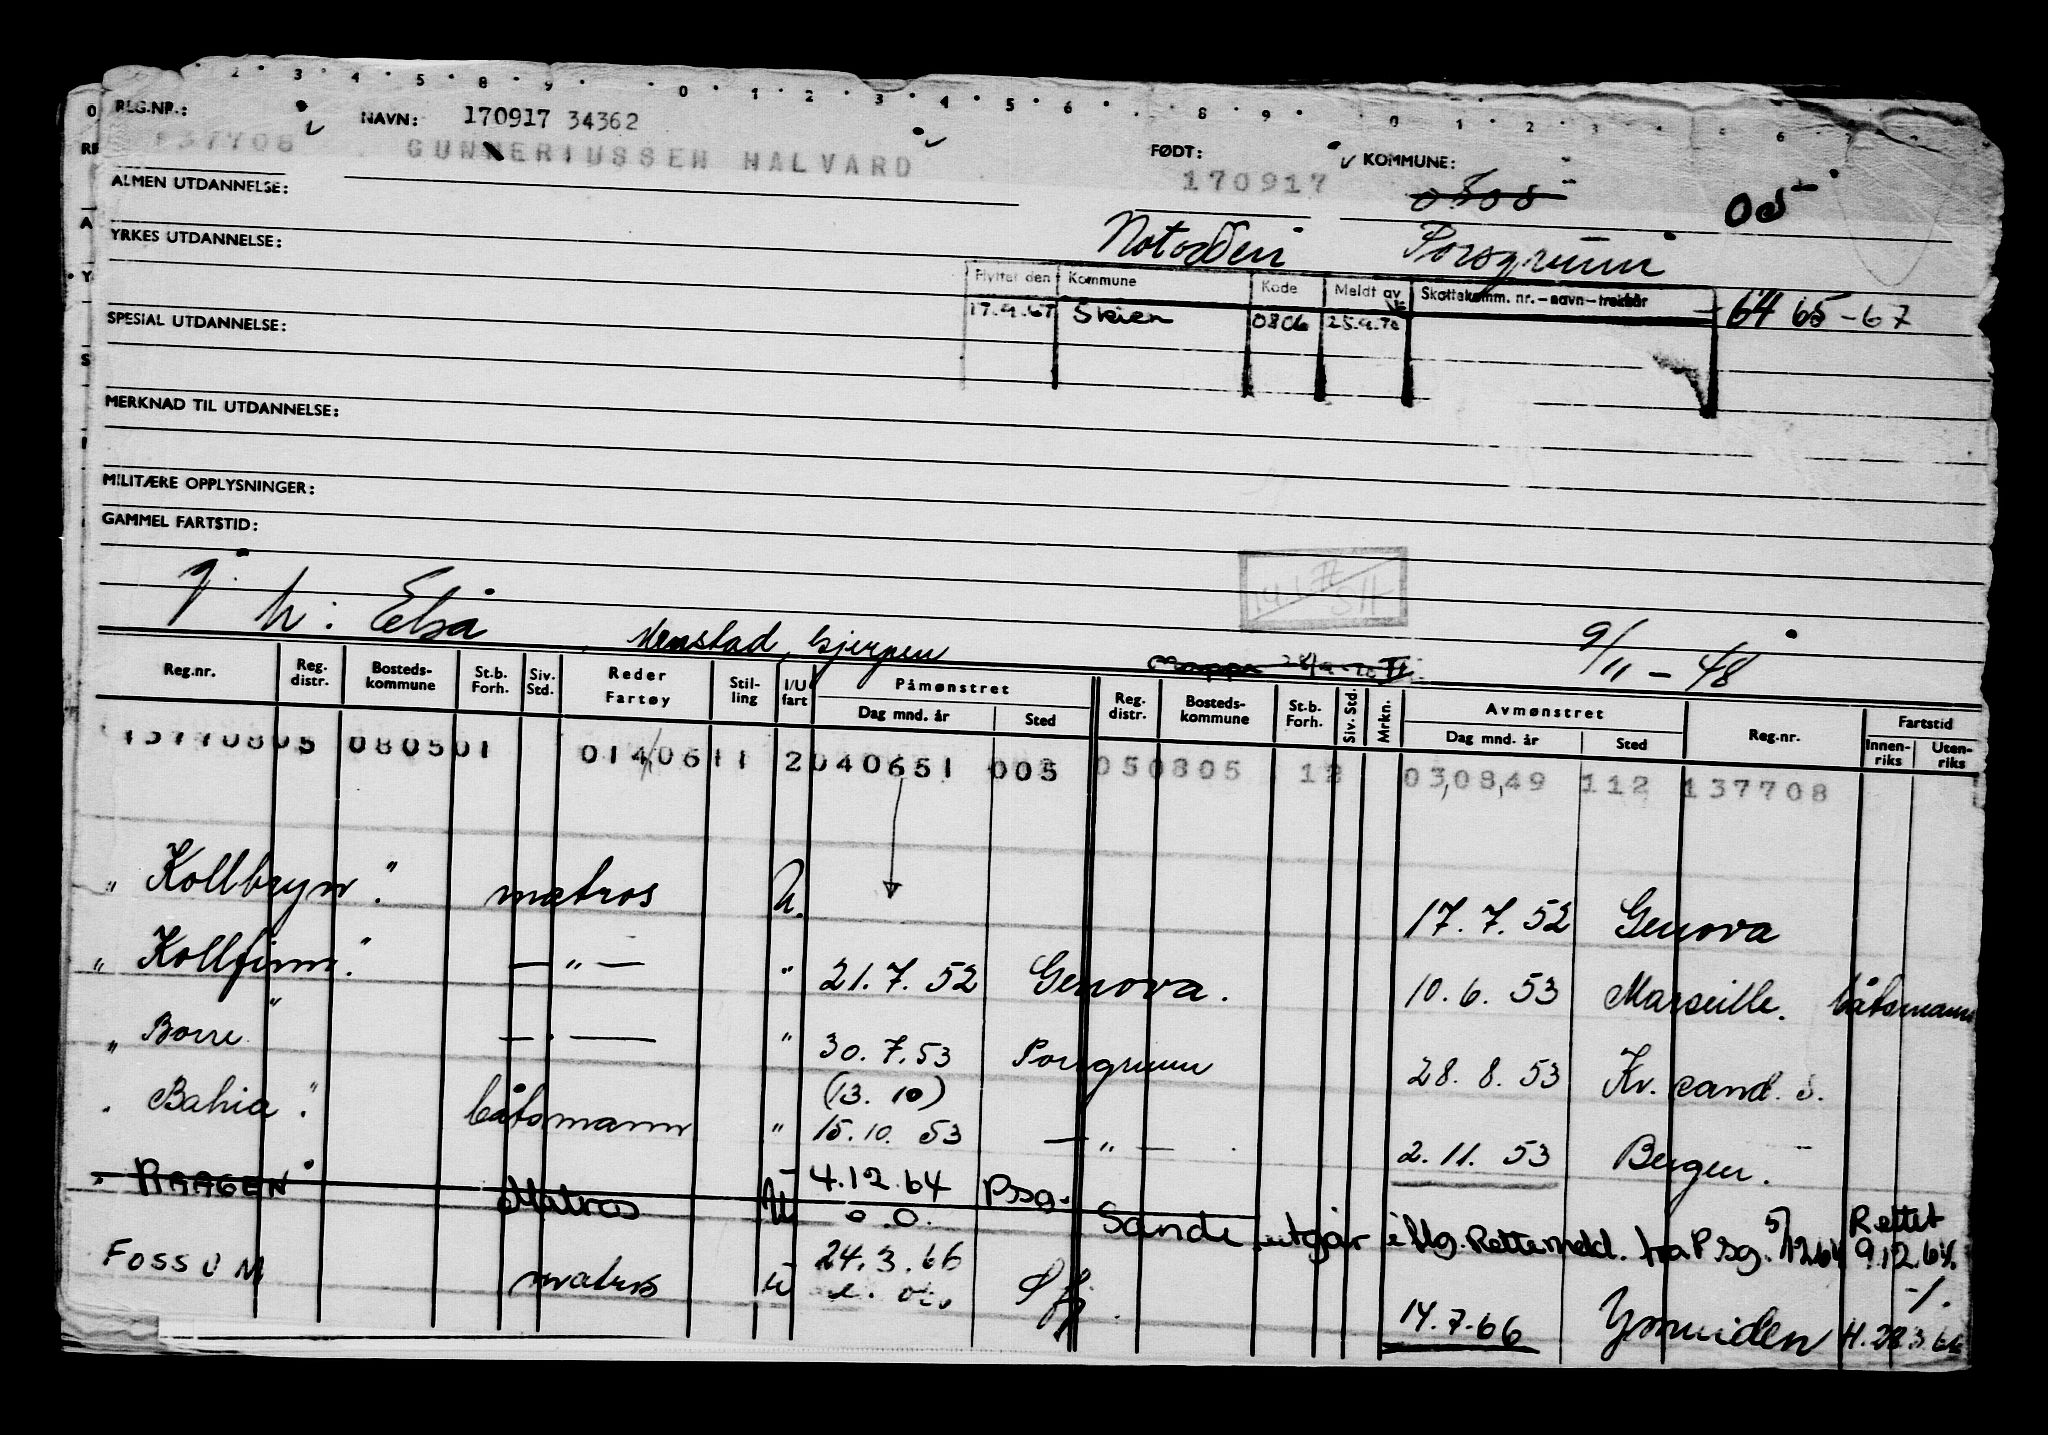 2 3 4 5 8 9 0 1 2 3 4 5 6 8 9 0 1 2 3 6
REG.NR.: NAVN: 170917 34362
137708 GUNNERIUSSEN HALVARD FØDT: 170917 KOMMUNE: 0805 05
ALMEN UTDANNELSE:
Notodden Porsgrunn
YRKES UTDANNELSE:
Flyttet den Kommune Kode Meldt av Skattekomm. nr. - navn - trekkår
17.9.67 Skien 0806 25.9.70 64 65-67
SPESIAL UTDANNELSE:
MERKNAD TIL UTDANNELSE:
MILITÆRE OPPLYSNINGER:
GAMMEL FARTSTID:
h: Elsa
Menstad, Gjerpen 9/11-48
Reg.nr. Reg. distr. Bosteds-kommune St.b. Forh. Siv. Std. Reder Fartøy Stil-ling I/U fart Påmønstret Dag mnd. år Sted Reg. distr. Bosteds-kommune St.b. Forh. Siv. Std. Mrkn. Avmønstret Dag mnd. år Sted Reg.nr. Fartstid Innen-riks Uten-riks
13770805 080501 0140611 2 040651 005 050805 12 030849 112 137708
" Kollbryn " matros U. 17.7.52 Genova
" Kollfinn " — " — " 21.7.52 Genova. 10.6.53 Marseille. båtsmann
" Borre " — " — " 30.7.53 Porsgrunn 28.8.53 Kr.sand. S.
(13.10)
" Bahia " båtsmann " 15.10.53 — " — 2.11.53 Bergen.
" Matros U 4.12.64 Psg.
o.o. Sande utgår iflg. Rettemeld. fra Psg. 5/12.64 Rettet 9.12.64
FOSSUM matros U 24.3.66 14.7.66 Ymuiden